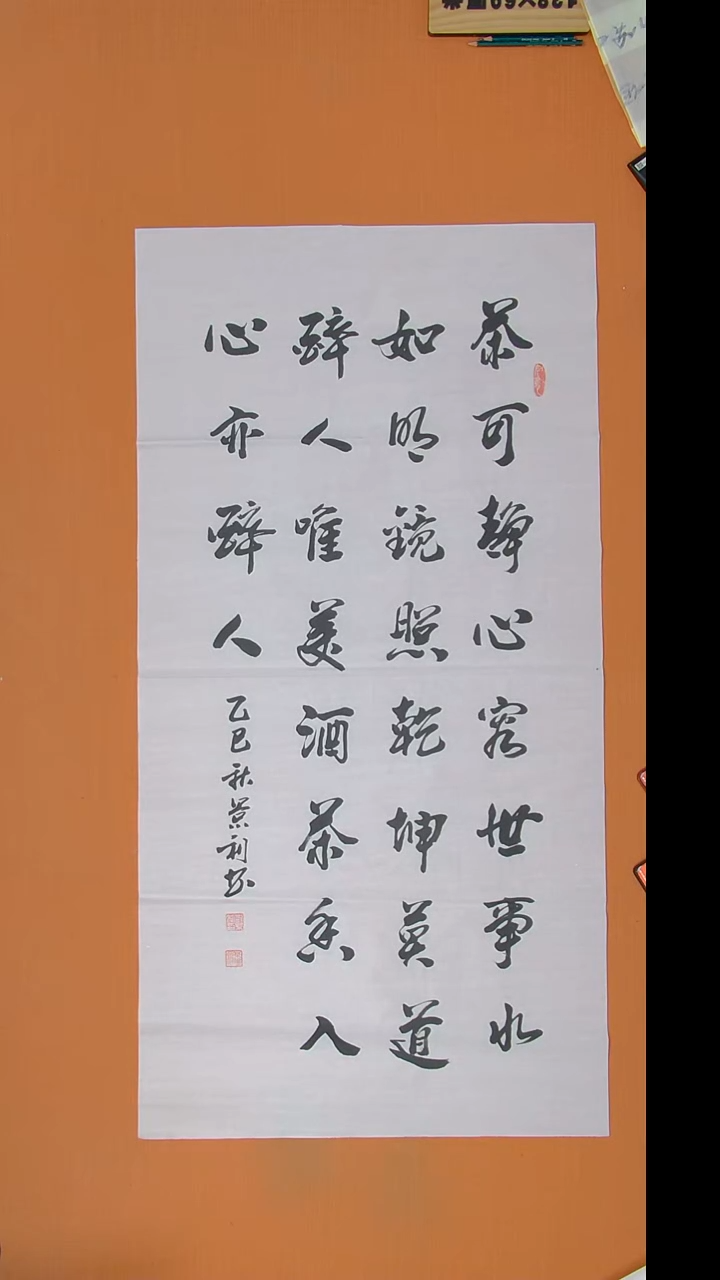 茶可静心容世事水
如明镜照乾坤莫道
醉人唯美酒茶香入
心亦醉人
乙巳秋景利书